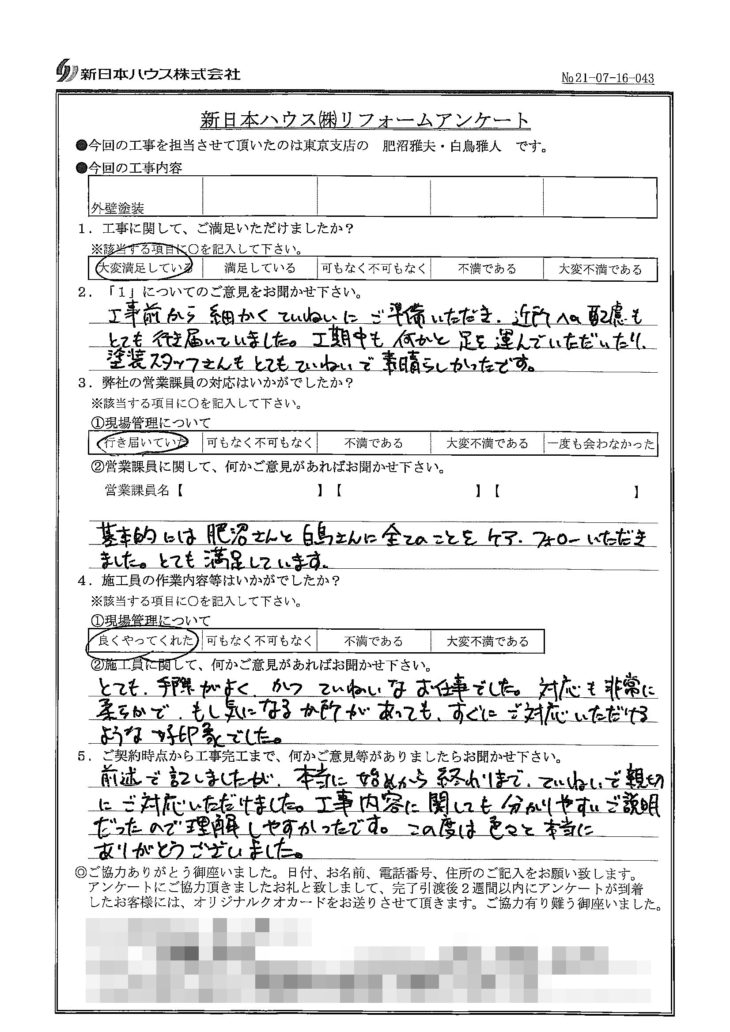 新日本ハウス株式会社
№21-07-16-043
新日本ハウス㈱リフォームアンケート
●今回の工事を担当させて頂いたのは東京支店の 肥沼雅夫・白鳥雅人 です。
●今回の工事内容
外壁塗装
1．工事に関して、ご満足いただけましたか？
※該当する項目に○を記入して下さい。
大変満足している 満足している 可もなく不可もなく 不満である 大変不満である
2．「1」についてのご意見をお聞かせ下さい。
工事前から細かくていねいにご準備いただき、近所への配慮も
とても行き届いていました。工期中も何かと足を運んでいただいたり、
塗装スタッフさんもとてもていねいで素晴らしかったです。
3．弊社の営業課員の対応はいかがでしたか？
※該当する項目に○を記入して下さい。
①現場管理について
行き届いていた 可もなく不可もなく 不満である 大変不満である 一度も会わなかった
②営業課員に関して、何かご意見があればお聞かせ下さい。
営業課員名【 】【 】【 】
基本的には肥沼さんと白鳥さんに全てのことをケア・フォローいただき
ました。とても満足しています。
4．施工員の作業内容等はいかがでしたか？
※該当する項目に○を記入して下さい。
①現場管理について
良くやってくれた 可もなく不可もなく 不満である 大変不満である
②施工員に関して、何かご意見があればお聞かせ下さい。
とても、手際がよく、かつていねいなお仕事でした。対応も非常に
柔らかで、もし気になるか所があっても、すぐにご対応いただける
ような好印象でした。
5．ご契約時点から工事完工まで、何かご意見等がありましたらお聞かせ下さい。
前述で記しましたが、本当に始めから終わりまで、ていねいで親切
にご対応いただけました。工事内容に関しても分かりやすいご説明
だったので理解しやすかったです。この度は色々と本当に
ありがとうございました。
◎ご協力ありがとう御座いました。日付、お名前、電話番号、住所のご記入をお願い致します。
アンケートにご協力頂きましたお礼と致しまして、完了引渡後2週間以内にアンケートが到着
したお客様には、オリジナルクオカードをお送りさせて頂きます。ご協力有り難う御座いました。